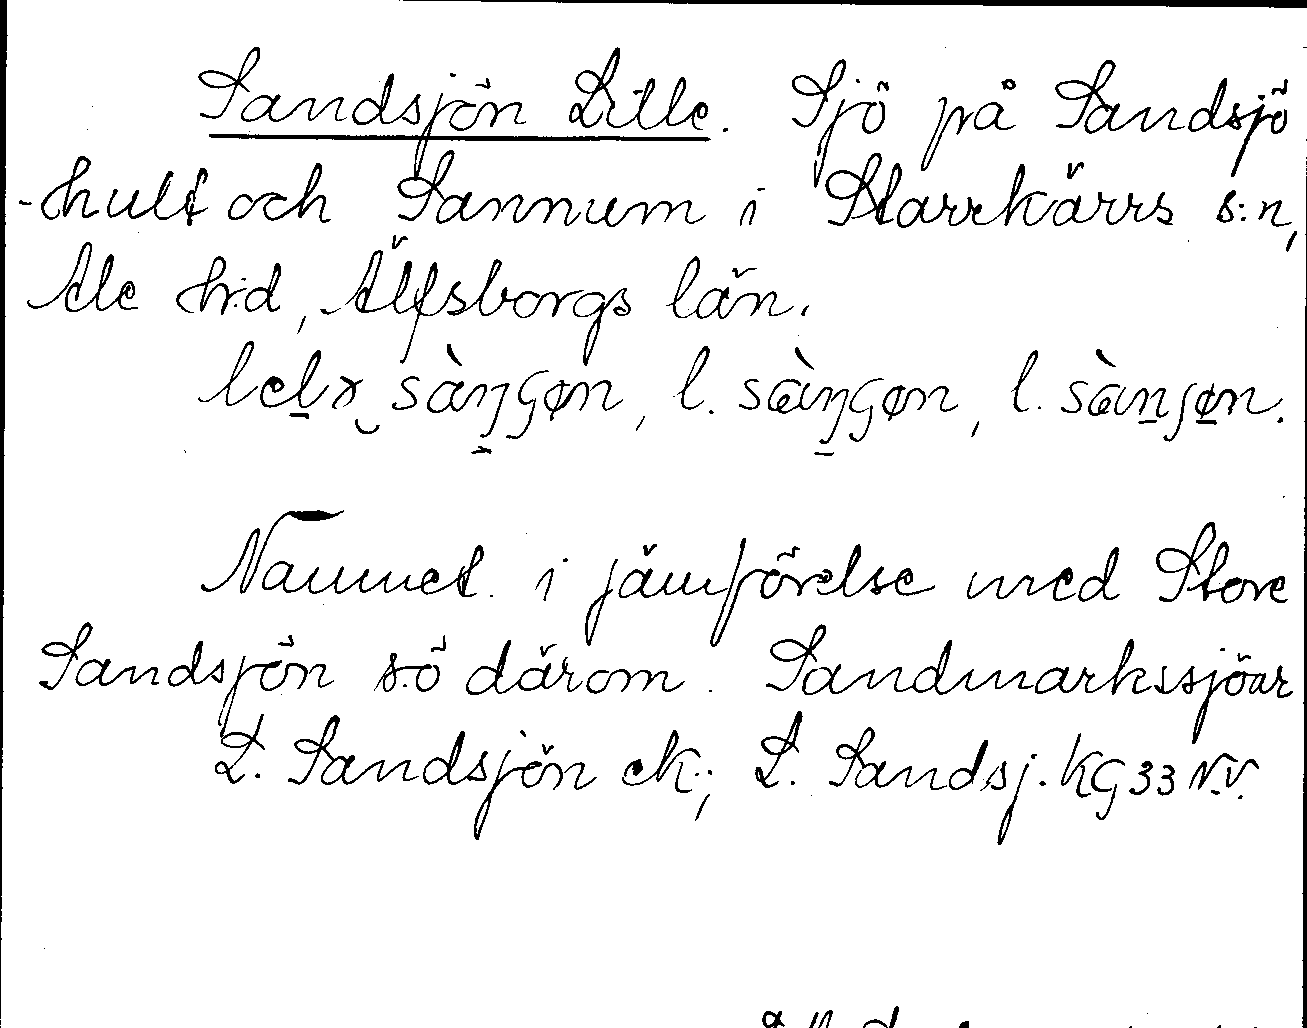 Sandsjön Lille. Sjö på Sandsjö
-hult och Sannum i Starrkärrs s:n,
Ale h:d, Älfsborgs län.
l. l.
Namnet i jämförelse med Store
Sandsjön sö därom. Sandmarkssjöar
L. Sandsjön ek.; L. Sandsj. KG 33 N.V.